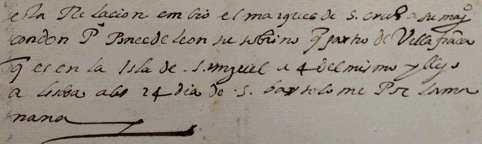 esta Relacion embio el marques de S. cruz a su mag.
con don P. Ponce de leon su sobrino q partio de Villa franca
q es en la Isla de S. miguel a 4 del mismo y llego
a lisboa a los 24 dia de S. bartolome Por la ma
ñana